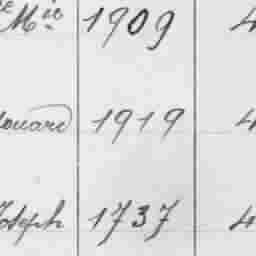 Mie 1909 4
douard 1919 4
Joseph 1737 4